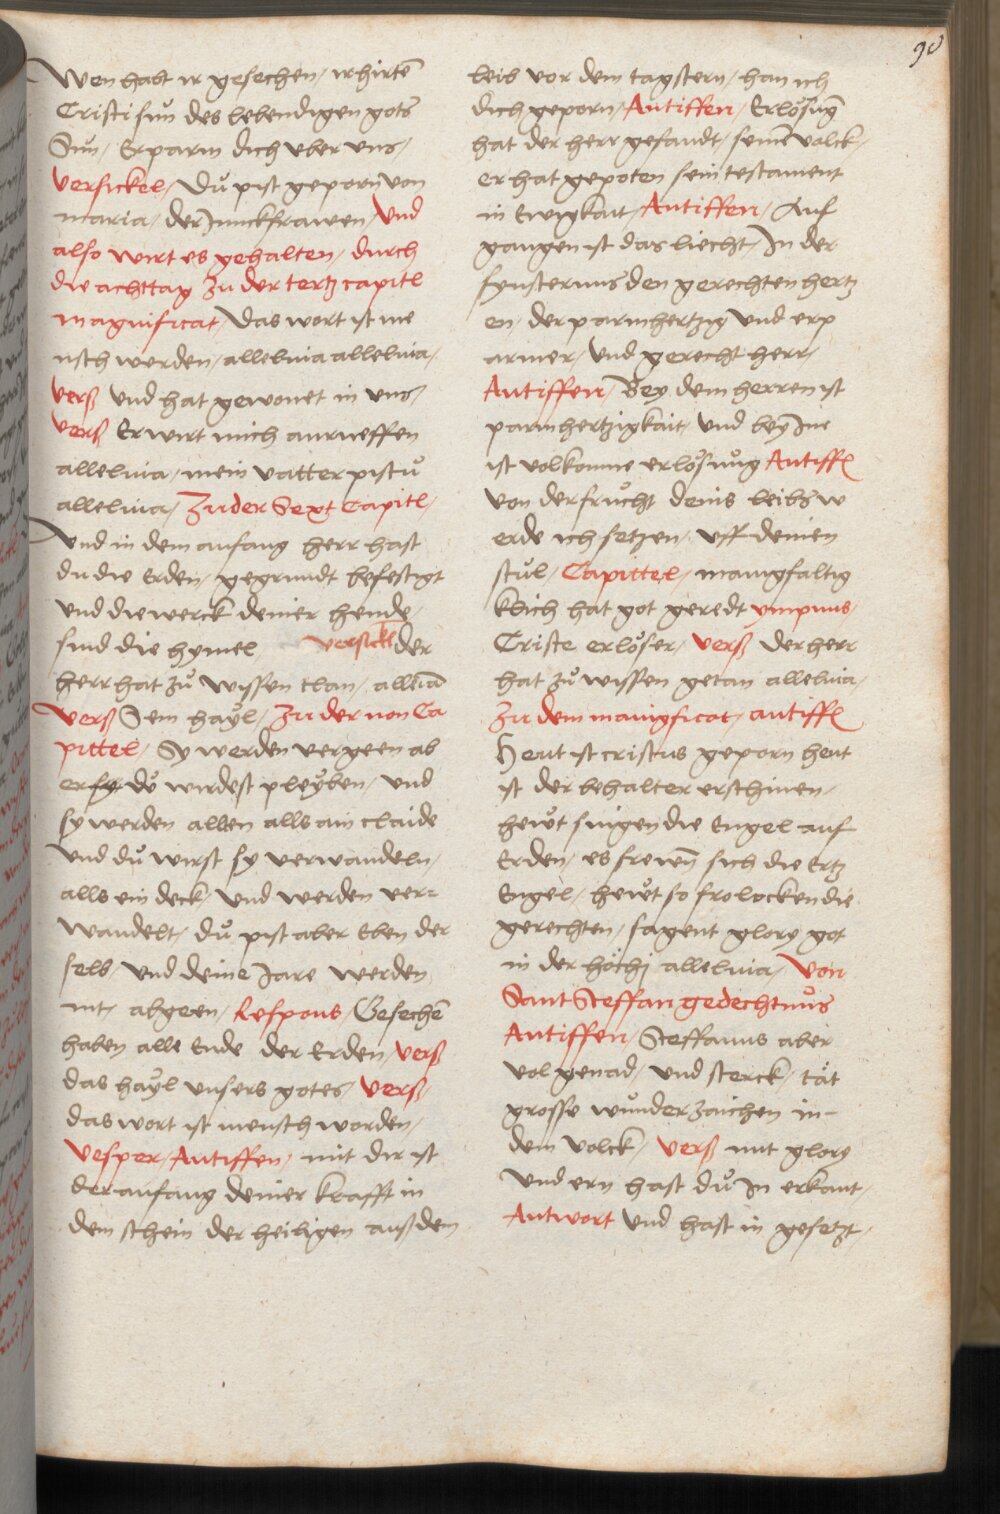 90
Wen habt ir gesechen / ir hirtē
Cristi sun des lebendigen gots
Sun / Erparm dich uber uns /
Versickel / Dů pist geporn von
maria / der Junckfrawen / Und
also wirt es gehalten / durch
die achttag zu der tertz capitl
magnificat / Das wort ist me
nsch werden / alleluia alleluia /
Verß Und hat gewonet in uns /
Verß Er wirt mich anrueffen
alleluia / mein vatter pistů
alleluia / Zu der Sext Capitl /
Und in dem anfang herr hast
du die Erden / gegrundt befestigt
und die werck deiner hende /
sind die hymel versickl der
herr hat zů wissen than / alleīa
Verß Sein hayl / Zu der non Ca
pittel / Sy werden vergeen ab
er sy dů wirdest pleyben / und
sy werden alten alls ain claide
und dů wirst sy verwandeln /
alls ein deck / und werden ver=
wandelt / dů pist aber Eben der
selb / und deine Jare werden
nit abgeen / Respons / Gesechē
haben alle Ende der Erden / Verß
das hayl unsers gotes / Verß /
das wort ist mensch worden /
Vesper / Antiffen / mit dir ist
der anfang deiner krafft in
dem schein der heiligen auß dem
leib vor dem tagstern / han ich
dich geporn / Antiffen / Erlösūg
hat der herr gesandt / seinē volck /
er hat gepoten sein testament
in Ewigkait / Antiffen / Auf
gangen ist das liecht / In der
fynsternus den gerechten hertz
en / der parmhertzig und erp
armer / und gerecht herr /
Antiffen / Bey dem herren ist
parmhertzigkait / und bey Ime
ist volkomne erlösung Antiffl
von der frucht deins leibs w
erde ich setzen / uff deinen
stul / Capittel / manigfaltig
klich hat got geredt ympnus /
Criste erlöser / verß der herr
hat zů wissen getan alleluia /
Zu dem manigficat / antiffl
Heut ist cristus geporn heut
ist der behalter erschinen /
hewt singen die Engel auf
Erden / es frewn̄ sich die Ertz
Engel / hewt so frolocken die
gerechten / sagent glory got
in der höchi alleluia / Von
Sant Steffan gedechtnus
Antiffen / Steffanus aber
vol genad / und sterck / tät
grosse wunderzaichen in-
dem volck / Verß mit glory
und ern hast dů In erkant /
Antwort und hast in gesetzt /